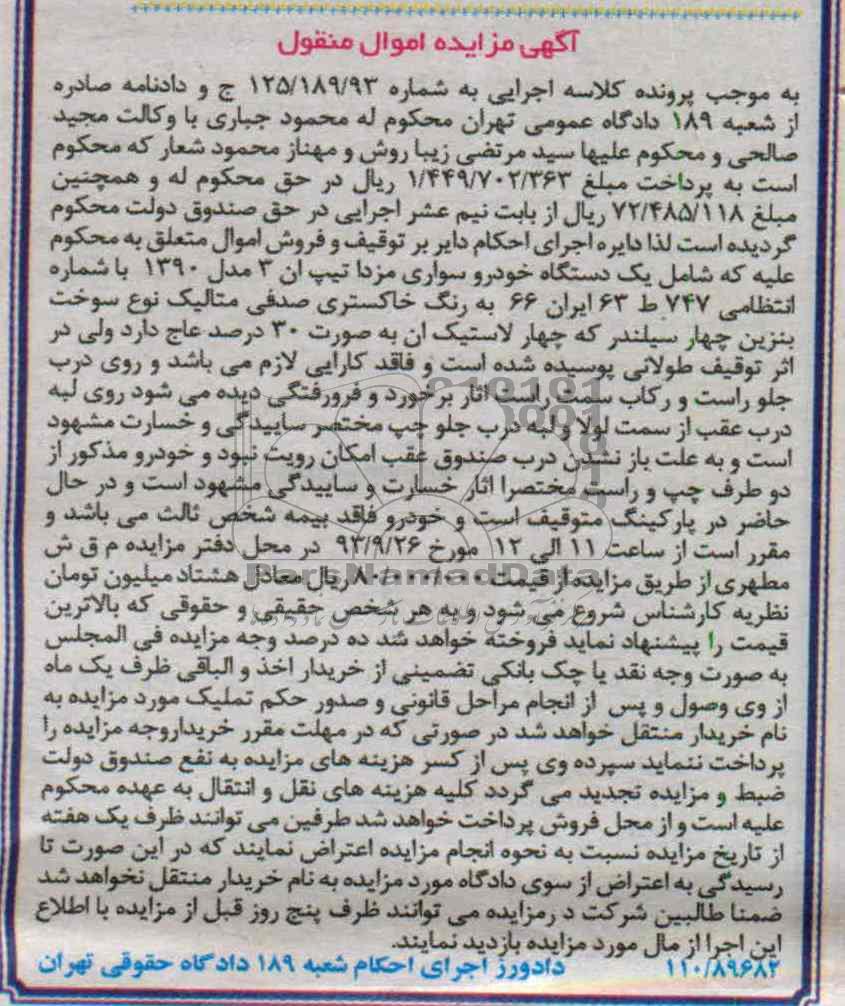 آگهی مزایده اموال منقول
به موجب پرونده کلاسه اجرایی به شماره ۱۲۵/۱۸۹/۹۳ ج و دادنامه صادره
از شعبه ۱۸۹ دادگاه عمومی تهران محکوم له محمود جباری با وکالت مجید
صالحی و محکوم علیها سید مرتضی زیبا روش و مهناز محمود شعار که محکوم
است به پرداخت مبلغ ۱/۴۴۹/۷۰۲/۳۶۳ ریال در حق محکوم له و همچنین
مبلغ ۷۲/۴۸۵/۱۱۸ ریال از بابت نیم عشر اجرایی در حق صندوق دولت محکوم
گردیده است لذا دایره اجرای احکام دایر بر توقیف و فروش اموال متعلق به محکوم
علیه که شامل یک دستگاه خودرو سواری مزدا تیپ ان ۳ مدل ۱۳۹۰ با شماره
انتظامی ۷۴۷ ط ۶۳ ایران ۶۶ به رنگ خاکستری صدفی متالیک نوع سوخت
بنزین چهار سیلندر که چهار لاستیک ان به صورت ۳۰ درصد عاج دارد ولی در
اثر توقیف طولانی پوسیده شده است و فاقد کارایی لازم می باشد و روی درب
جلو راست و رکاب سمت راست اثار برخورد و فرورفتگی دیده می شود روی لبه
درب عقب از سمت لولا و لبه درب جلو چپ مختصر ساییدگی و خسارت مشهود
است و به علت باز نشدن درب صندوق عقب امکان رویت نبود و خودرو مذکور از
دو طرف چپ و راست مختصرا اثار خسارت و ساییدگی مشهود است و در حال
حاضر در پارکینگ متوقیف است و خودرو فاقد بیمه شخص ثالث می باشد و
مقرر است از ساعت ۱۱ الی ۱۲ مورخ ۹۳/۹/۲۶ در محل دفتر مزایده م ق ش
مطهری از طریق مزایده از قیمت ۸۰۰/۰۰۰/۰۰۰ ریال معادل هشتاد میلیون تومان
نظریه کارشناس شروع می شود و به هر شخص حقیقی و حقوقی که بالاترین
قیمت را پیشنهاد نماید فروخته خواهد شد ده درصد وجه مزایده فی المجلس
به صورت وجه نقد یا چک بانکی تضمینی از خریدار اخذ و الباقی ظرف یک ماه
از وی وصول و پس از انجام مراحل قانونی و صدور حکم تملیک مورد مزایده به
نام خریدار منتقل خواهد شد در صورتی که در مهلت مقرر خریداروجه مزایده را
پرداخت ننماید سپرده وی پس از کسر هزینه های مزایده به نفع صندوق دولت
ضبط و مزایده تجدید می گردد کلیه هزینه های نقل و انتقال به عهده محکوم
علیه است و از محل فروش پرداخت خواهد شد طرفین می توانند ظرف یک هفته
از تاریخ مزایده نسبت به نحوه انجام مزایده اعتراض نمایند که در این صورت تا
رسیدگی به اعتراض از سوی دادگاه مورد مزایده به نام خریدار منتقل نخواهد شد
ضمنا طالبین شرکت د رمزایده می توانند ظرف پنج روز قبل از مزایده با اطلاع
این اجرا از مال مورد مزایده بازدید نمایند.
۱۱۰/۸۹۶۸۲ دادورز اجرای احکام شعبه ۱۸۹ دادگاه حقوقی تهران
ParsNamadData